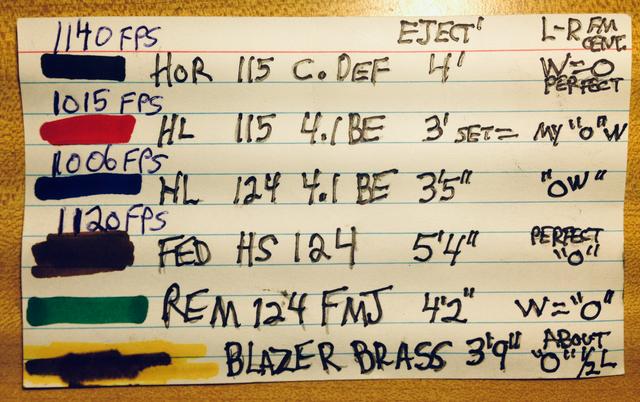 1140 FPS EJECT' L-R FM CENT.
HOR 115 C. DEF 4' W=O PERFECT
1015 FPS
HL 115 4.1 BE 3' SET= MY "O" W
1006 FPS
HL 124 4.1 BE 3'5" "OW"
1120 FPS
FED HS 124 5'4" PERFECT "O"
REM 124 FMJ 4'2" W="O"
BLAZER BRASS 3'9" ABOUT "O" 1/2 L